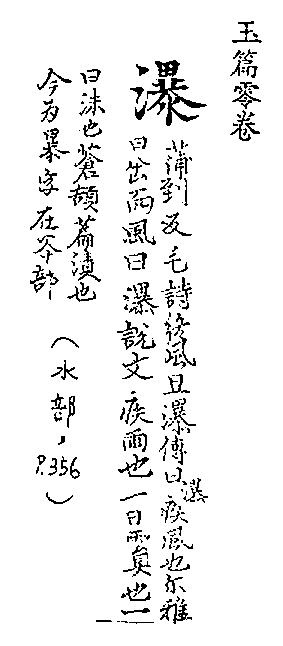 玉篇零卷
瀑
蒲到反毛詩終風且瀑傳曰瀑疾風也尔雅
日出而風曰瀑說文疾雨也一曰雨臭也一
曰沫也蒼頡篇瀆也
今为暴字在夲部
(水部,P.356)